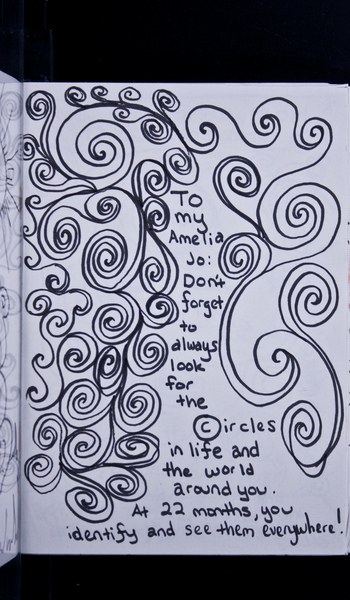 To
my
Amelia
Jo:
Don't
forget
to
always
look
for
the
Circles
in life and
the world
around you.
At 22 months, you
identify and see them everywhere!